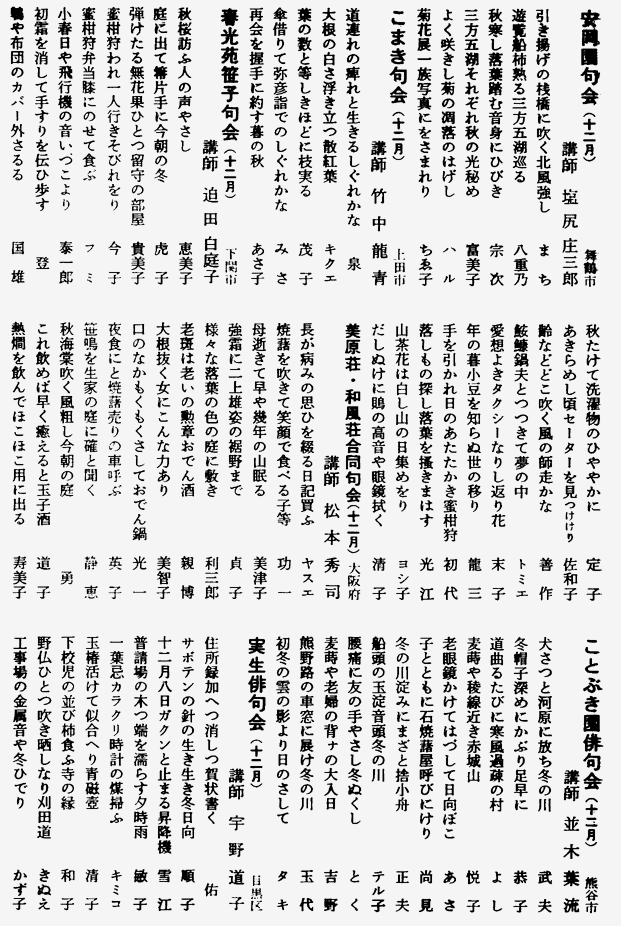 安岡園句会（十二月）　舞鶴市
講師　塩尻　庄三郎
引き揚げの桟橋に吹く北風強し　まち
遊覧船柿熟る三方五湖巡る　八重乃
秋寒し落葉踏む音身にひびき　宗次
三方五湖それぞれ秋の光秘め　富美子
よく咲きし菊の凋落のはげし　ハル
菊花展一族写真にをさまれり　ちゑ子
こまき句会（十二月）　上田市
講師　竹中　龍青
道連れの痺れと生きるしぐれかな　泉
大根の白さ浮き立つ散紅葉　キクエ
葉の数と等しきほどに枝実る　茂子
傘借りて弥彦詣でのしぐれかな　みさ
再会を握手に約す暮の秋　あさ子
春光苑笹子句会（十二月）　下関市
講師　迫田　白庭子
秋桜訪ふ人の声やさし　恵美子
庭に出て箒片手に今朝の冬　虎子
弾けたる無花果ひとつ留守の部屋　貴美子
蜜柑狩われ一人行きそびれをり　今子
蜜柑狩弁当膝にのせて食ぶ　フミ
小春日や飛行機の音いづこより　泰一郎
初霜を消して手すりを伝ひ歩す　登
鵯や布団のカバー外さるる　国雄
秋たけて洗濯物のひややかに　定子
あきらめし頃セーターを見つけけり　佐和子
齢などどこ吹く風の師走かな　善作
鮟鱇鍋夫とつつきて夢の中　トミエ
愛想よきタクシーなりし返り花　末子
年の暮小豆を知らぬ世の移り　龍三
手を引かれ日のあたたかき蜜柑狩　初代
落しもの探し落葉を掻きまはす　光江
山茶花は白し山の日集めをり　ヨシ子
だしぬけに鵙の高音や眼鏡拭く　清子
美原荘・和風荘合同句会（十二月）　大阪府
講師　松本　秀司
長が病みの思ひを綴る日記買ふ　ヤスエ
焼藷を吹きて笑顔で食べる子等　功一
母逝きて早や幾年の山眠る　美津子
強霜に二上雄姿の裾野まで　貞子
様々な落葉の色の庭に敷き　利三郎
老斑は老いの勲章おでん酒　親博
大根抜く女にこんな力あり　美智子
口のなかもくもくさしておでん鍋　光一
夜食にと焼藷売りの車呼ぶ　英子
笹鳴を生家の庭に確と聞く　静恵
秋海棠吹く風粗し今朝の庭　勇
これ飲めば早く癒えると玉子酒　道子
熱燗を飲んでほこほこ用に出る　寿美子
ことぶき園俳句会（十二月）　熊谷市
講師　並木　葉流
犬さつと河原に放ち冬の川　武夫
冬帽子深めにかぶり足早に　恭子
道曲るたびに寒風過疎の村　よし
麦蒔や稜線近き赤城山　悦子
老眼鏡かけてはづして日向ぼこ　あさ
子とともに石焼藷屋呼びにけり　尚見
冬の川淀みにまざと捨小舟　正夫
船頭の玉淀音頭冬の川　テル子
腰痛に友の手やさし冬ぬくし　とく
麦蒔や老婦の背ァの大入日　吉野
熊野路の車窓に展け冬の川　玉代
初冬の雲の影より日のさして　タキ
実生俳句会（十二月）　目黒区
講師　宇野　道子
住所録加へつ消しつ賀状書く　佑
サボテンの針の生き生き冬日向　順子
十二月八日ガクンと止まる昇降機　雪江
普請場の木つ端を濡らす夕時雨　敏子
一葉忌カラクリ時計の煤掃ふ　キミコ
玉椿活けて似合へり青磁壺　清子
下校児の並び柿食ふ寺の縁　和子
野仏ひとつ吹き晒しなり刈田道　きぬえ
工事場の金属音や冬ひでり　かず子